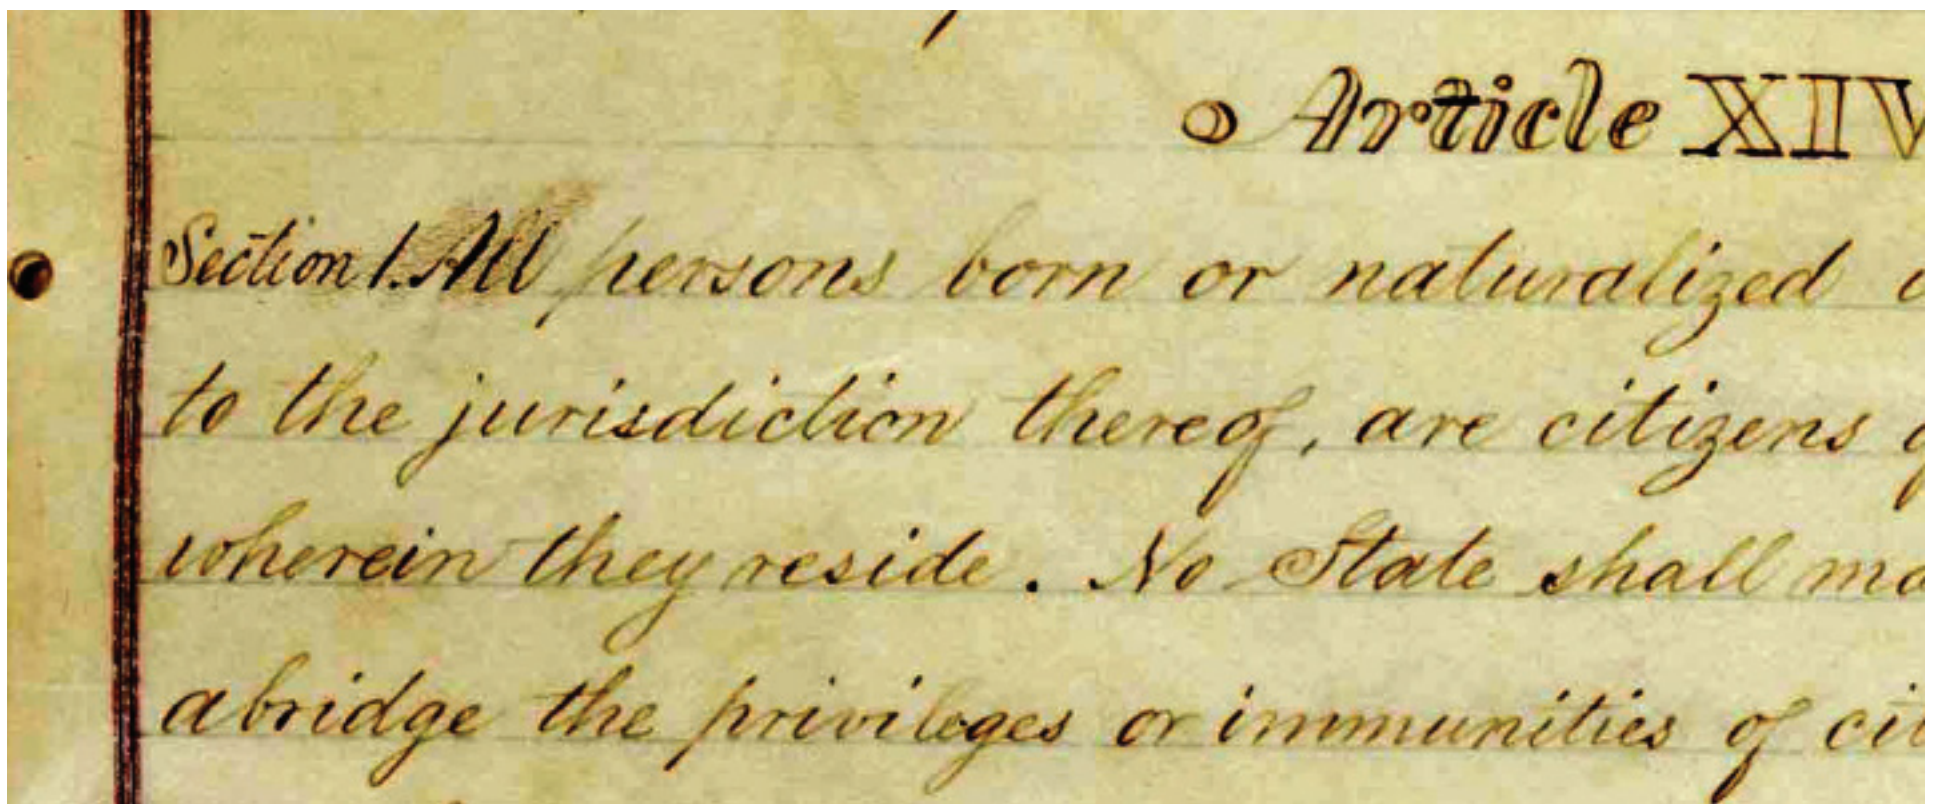 Article XIV
Section 1. All persons born or naturalized
to the jurisdiction thereof, are citizens
wherein they reside. No State shall
abridge the privileges or immunities of